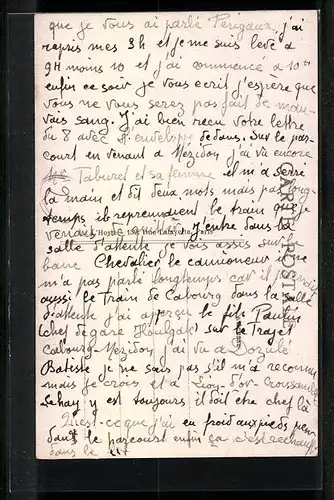 que je vous ai parlé Perigaux, j'ai
repris mes 3h et je me suis levé à
9H moins 10 et j'ai commencé à 10h
enfin ce soir je vous ecrit j'espère que
vous ne vous serez pas fait de mau-
vais sang. J'ai bien recu votre lettre
du 8 avec l'enveloppe dedans. Sur le par-
court en venant à Mézidon j'ai vu encore
Taburel et sa femme il m'a serré
la main et dit deux mots mais pas long-
temps ils reprendient le train que je
venais de j'entre dans la
salle d'attente je vois assis sur
banc Chevalier le camioneur il ne
m'a pas parlé longtemps car il
aussi le train de Cabourg dans la salle
d'attente j'ai aperçu le fils
(chef de gare Houlgate) sur le trajet
Cabourg-Mézidon j'ai vu à Dozulé
Batiste je ne sais pas s'il m'a reconnu
mais je crois et à Lion-d'or-
Lehay y est toujours il doit être chef là
Qu'est-ce que j'ai eu froid aux pieds pen-
dant le parcourt enfin ça c'est rechauffé
dans le lit
CARTE POSTALE